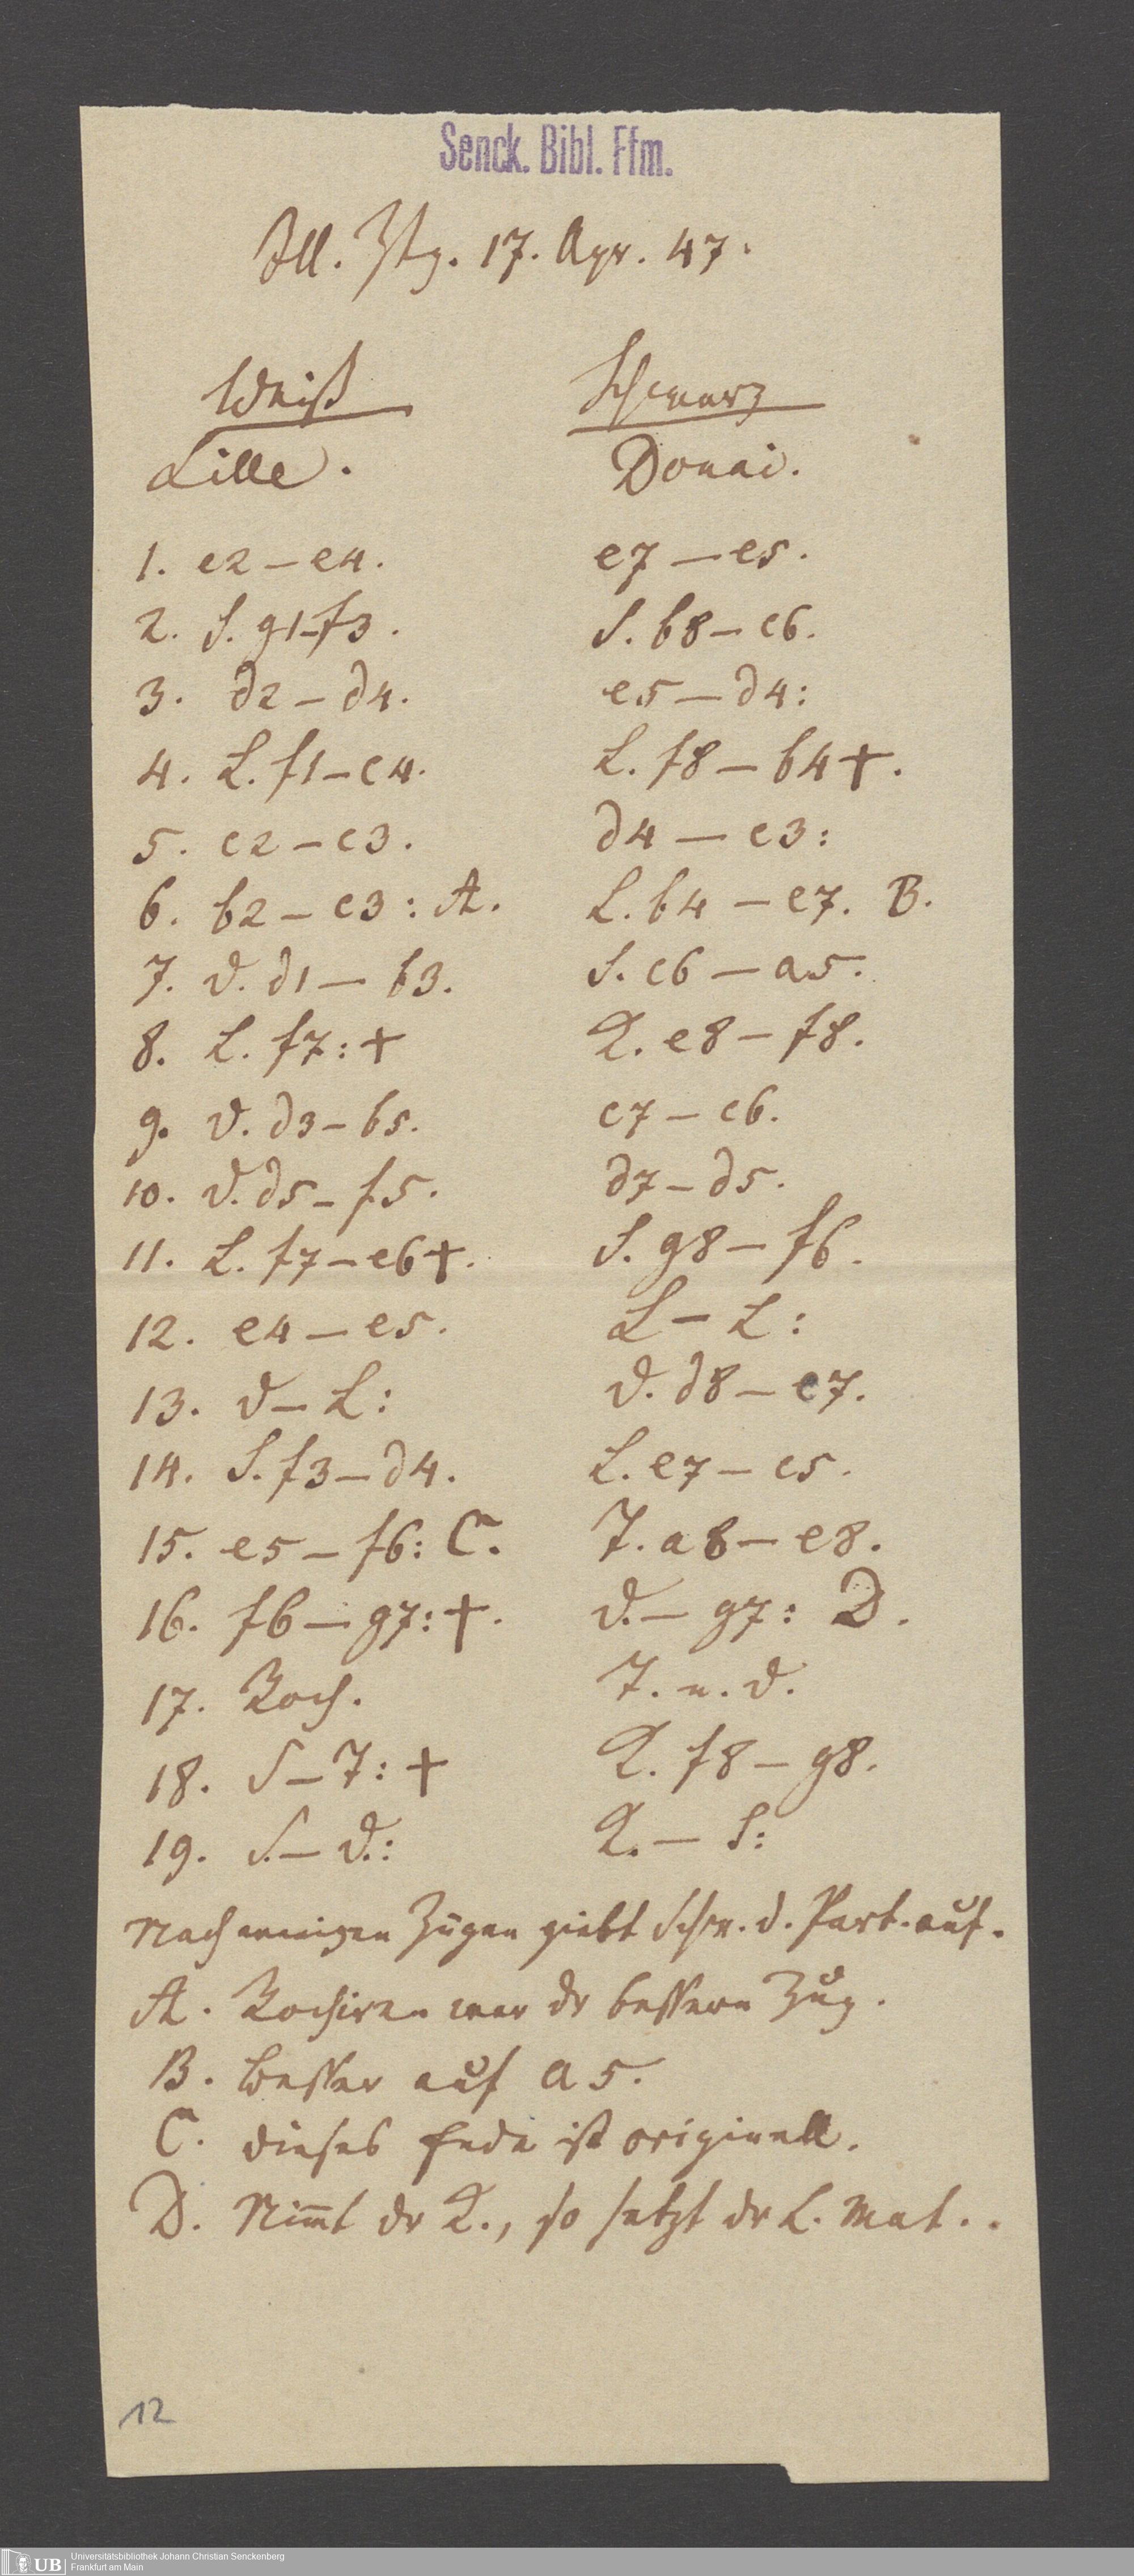 Senck. Bibl. Ffm.
Ill. Ztg. 17. Apr. 47.
Weiß Schwarz
Lille. Douai.
1. e2 – e4. e7 – e5.
2. S. g1–f3. S. b8 – c6.
3. d2 – d4. e5 – d4:
4. L. f1 – c4. L. f8 – b4 †.
5. c2 – c3. d4 – c3:
6. b2 – c3: A. L. b4 – e7. B.
7. D. d1 – b3. S. c6 – a5.
8. L. f7: † K. e8 – f8.
9. D. d3 – b5. c7 – c6.
10. D. d5 – f5. d7 – d5.
11. L. f7 – e6 †. S. g8 – f6.
12. e4 – e5. L – L:
13. D – L: D. d8 – e7.
14. S. f3 – d4. L. e7 – c5.
15. e5 – f6: C. T. a8 – e8.
16. f6 – g7: †. D. – g7: D.
17. Roch. T. n. D.
18. S – T: † K. f8 – g8.
19. S. – D.: K. – S:
Nach einigen Zügen giebt Schw. d. Part. auf.
A. Rochiren war dr bessere Zug.
B. Besser auf a5.
C. Dieses Ende ist originell.
D. Nim̄t dr K., so setzt dr L. Mat..
12
UB Universitätsbibliothek Johann Christian Senckenberg
Frankfurt am Main